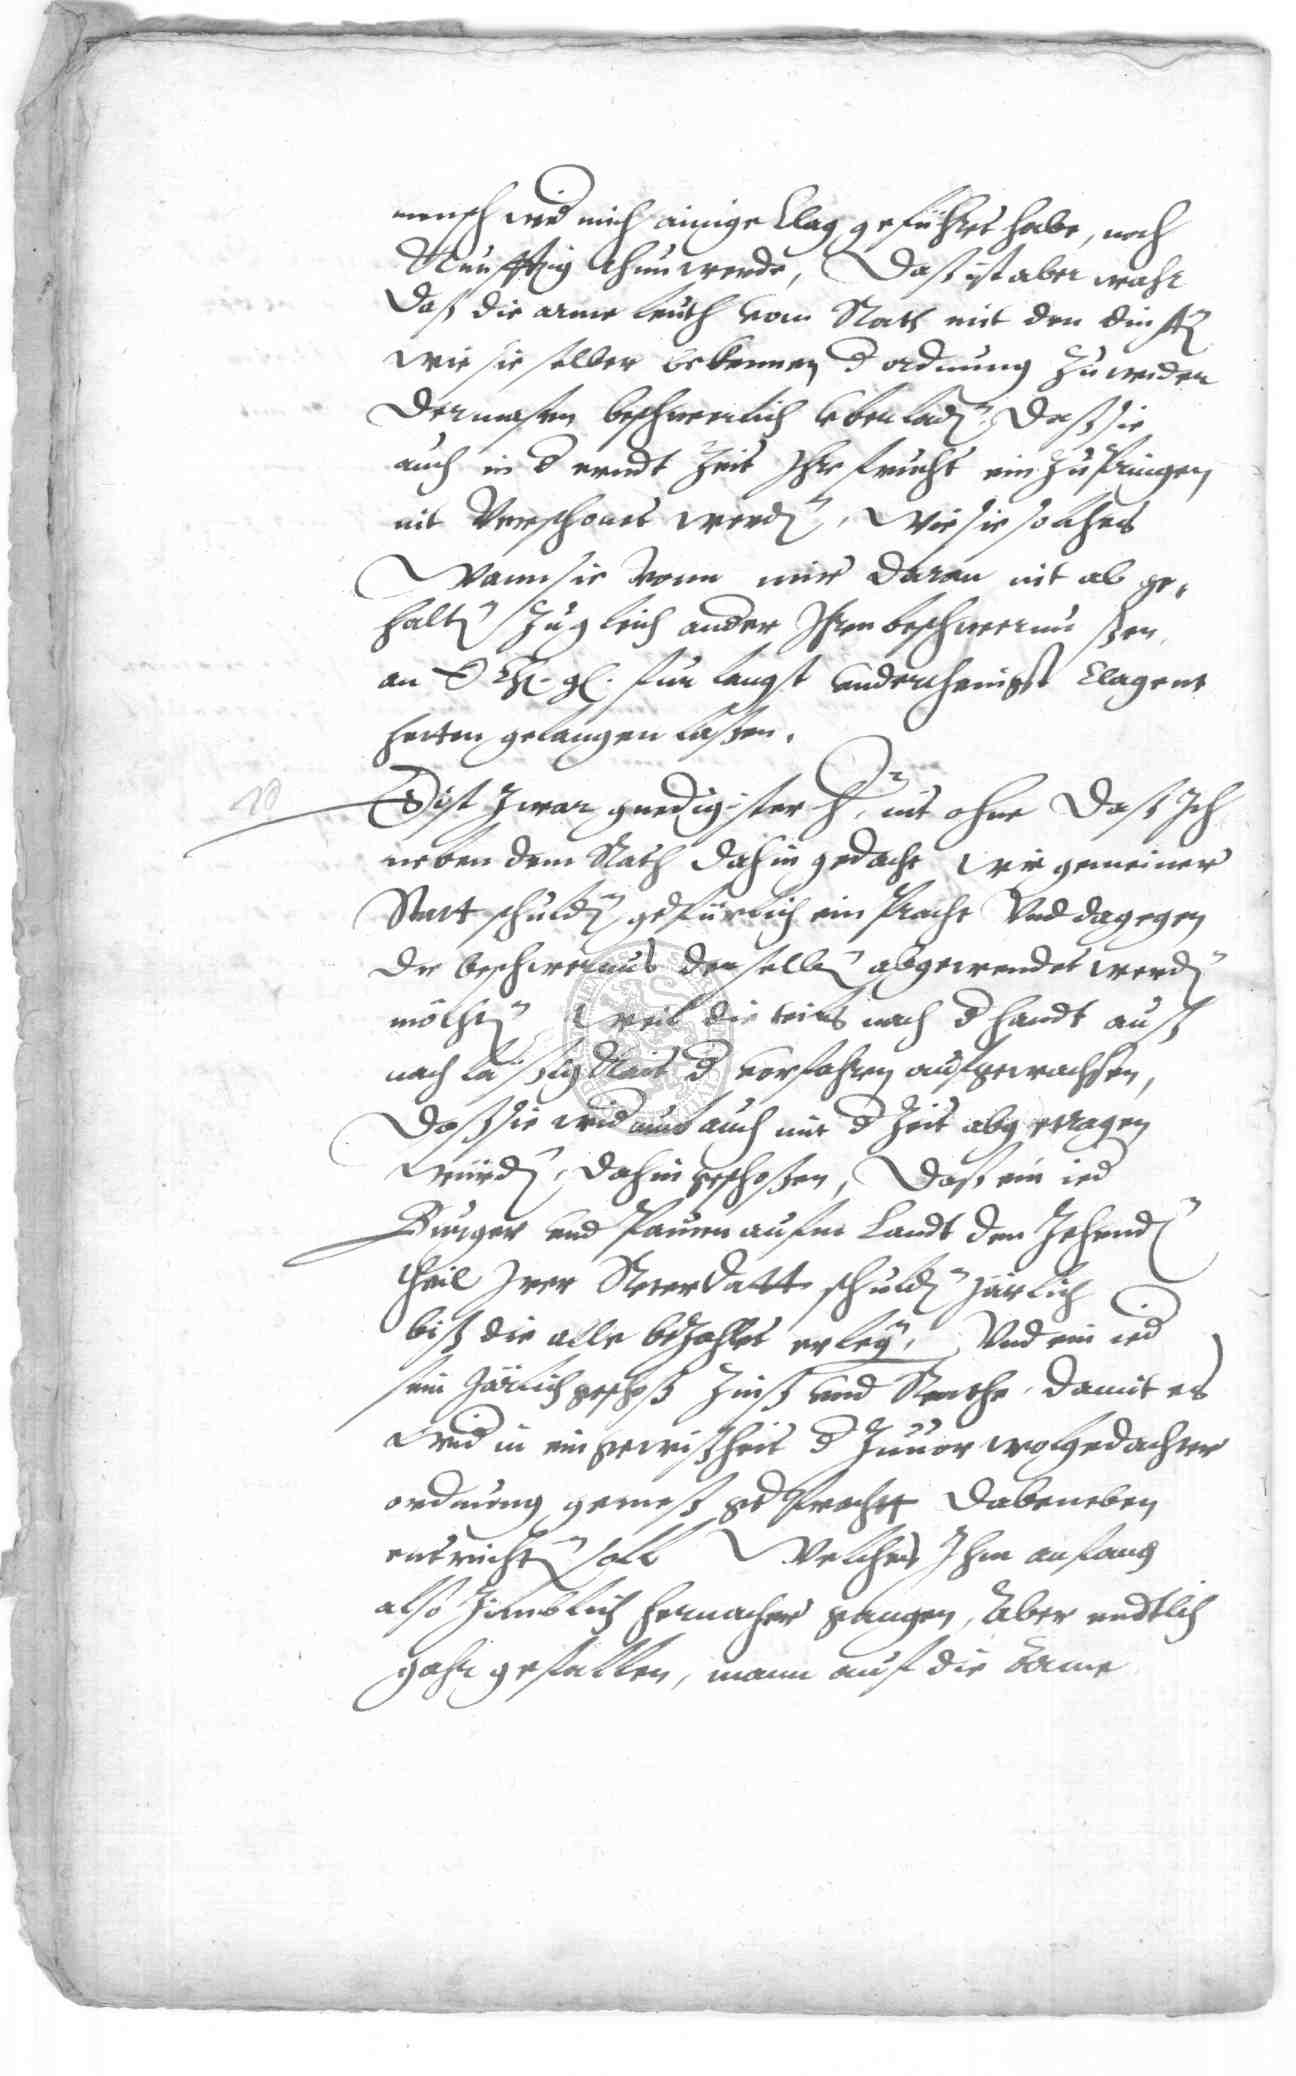 mensch wid mich ainige Clag gefühlet habe, noch
Kunfftig thun werde, Dass ist aber wahr
Dass die arme leuth vom Rath mit den dinst
wie sie selber bekennen d ordnung Zuwider
dermassen beschwerlich vberladn, Dass sie
auch in d erndt Zeit Ihr frucht ein Zu pringen
nit Verschonet werdn, Wie sie solches
Wann sie vonn mir daran nit ab ge,
haltn Zugleich ander Ihren beschwernussen
an E fl. gl. fur langst vnderthenigst Clagent
hetten gelangen lassen.
Es ist Zwar gnedigster H, nit ohne Dass Ich
neben dem Rath dahin gedacht wie gemeiner
Statt schuldn gefürlich ein Pracht Vnd dagegen
die beschwernus derselbn abgewendet werdn
möchtn, Weil die teils nach d handt auss
nachlässigkeit d vorfahren aufgewachsen,
Dass sie wid umb auch mit d Zeit abgetragen
würdn, dahin geschossen, Dass ein ied
Burger vnd Pauer aufm Landt den Zehendn
theil Irer schuldn järlich
biss die alle bezahlet erlegn, Vnd ein ied
sein Järlich geschoss Zinss vnd damit es
wid in ein gewissheit d Zuuor wolgedachter
ordnung gemess gepracht dabeneben
entrichtn soll Welches Ihm anfang
also Zimblich hernacher gangen, Aber endtlich
gahr gefallen, wann auf die Arme